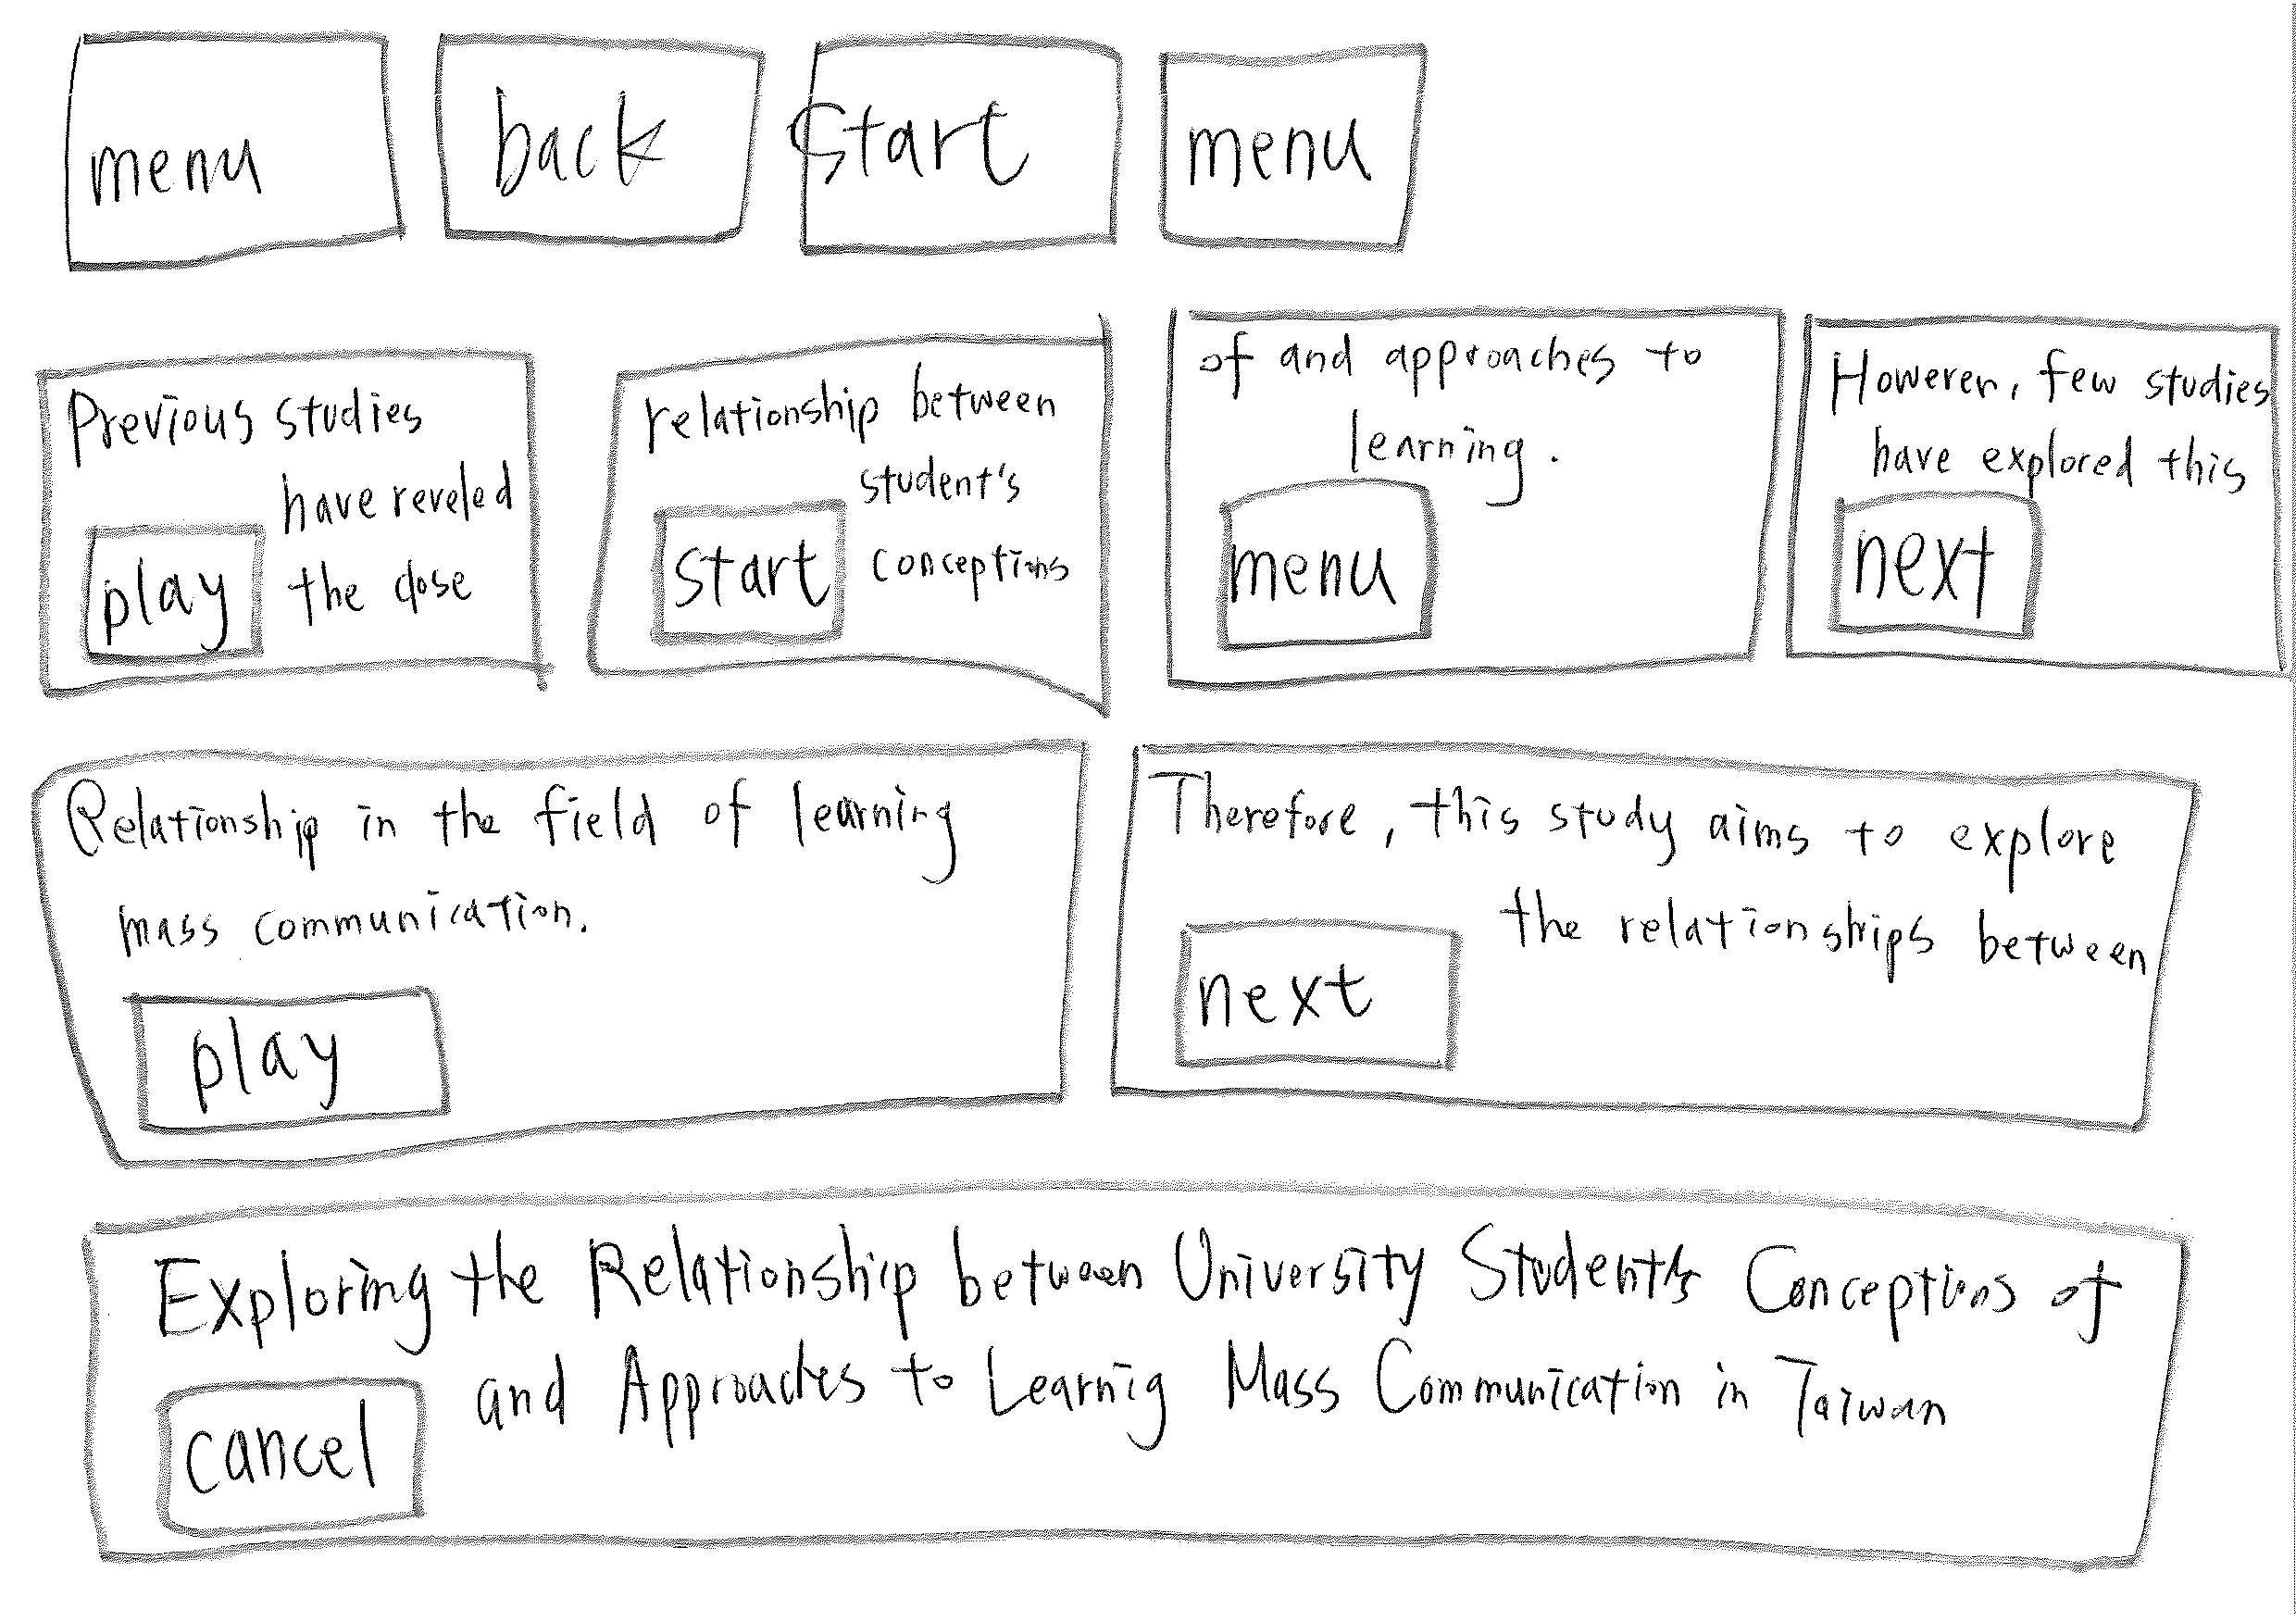 menu
back
start
menu
Previous studies
have reveled
the close
play
relationship between
student's
conceptions
start
of and approaches to
learning.
menu
However, few studies
have explored this
next
Relationship in the field of learning
mass communication.
play
Therefore, this study aims to explore
the relationships between
next
Exploring the Relationship between University Student's Conceptions of
and Approaches to Learnig Mass Communication in Taiwan
cancel